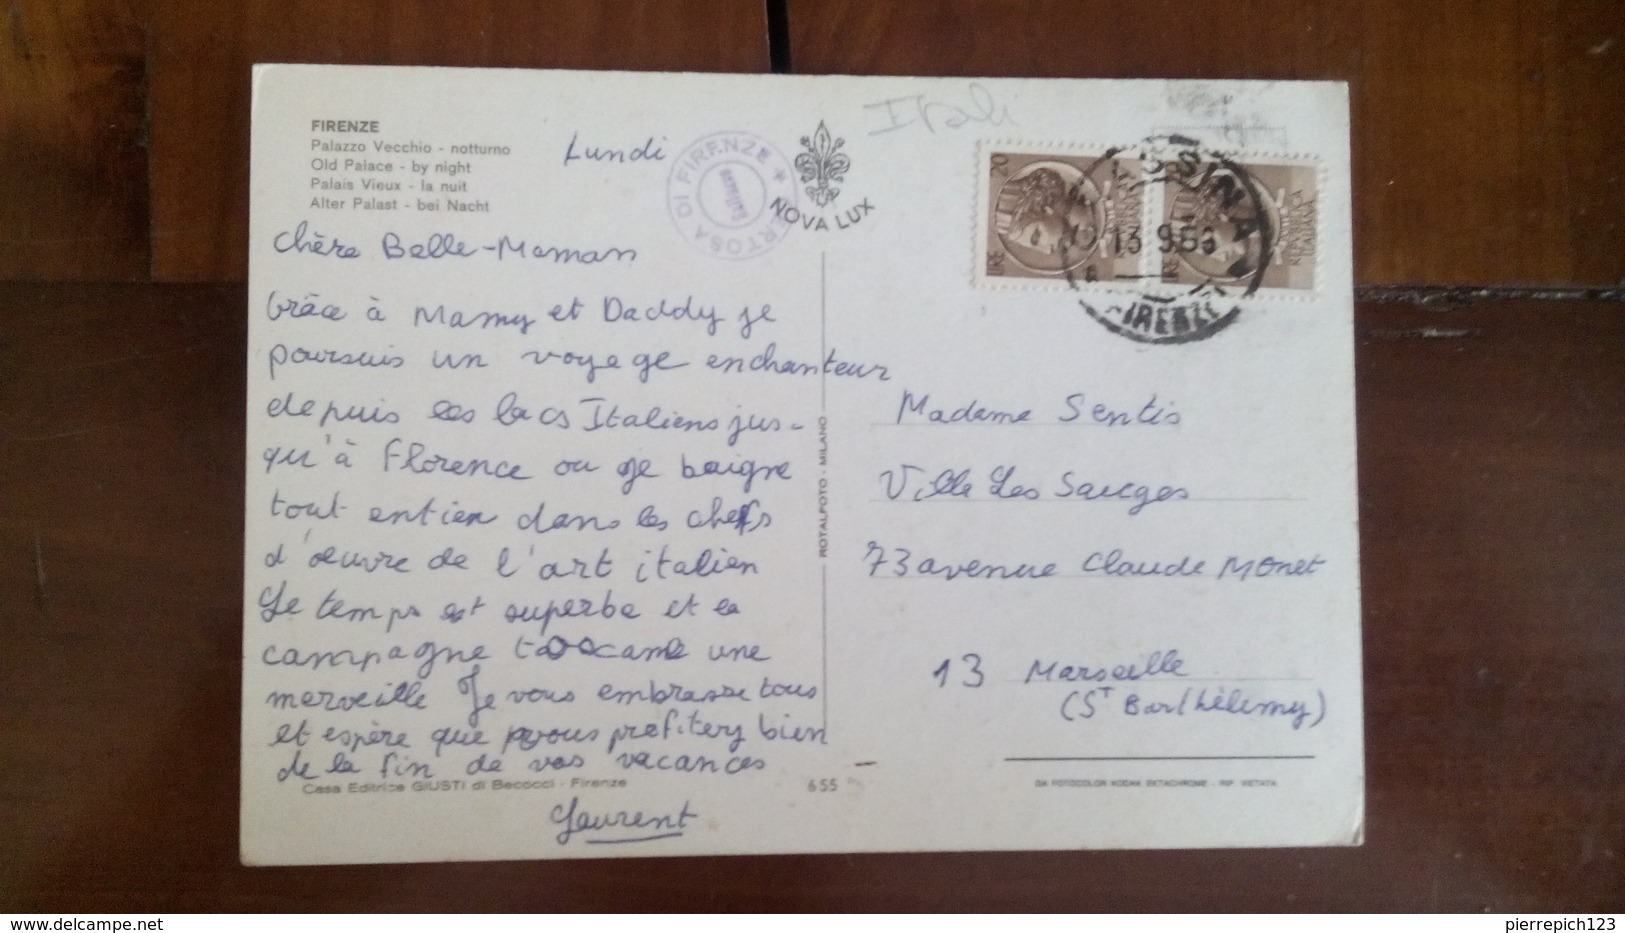 FIRENZE
Palazzo Vecchio - notturno
Old Palace - by night
Palais Vieux - la nuit
Alter Palast - bei Nacht
Lundi
CERTOSA DI FIRENZE
NOVA LUX
Itali
20
LIRE
REPUBBLICA ITALIANA
LIRE
REPUBBLICA ITALIANA
13 9 63
FIRENZE
Chère Belle-Maman
Grâce à Mamy et Daddy je
poursuis un voyage enchanteur
depuis les lacs Italiens jus-
qu'à Florence ou je baigne
tout entier dans les chefs
d'œuvre de l'art italien
Le temps est superbe et la
campagne toscane une
merveille Je vous embrasse tous
et espère que vous profitez bien
de la fin de vos vacances
Laurent
Casa Editrice GIUSTI di Becocci - Firenze
655
ROTALFOTO - MILANO
Madame Sentis
Ville Les Sauges
73 avenue Claude Monet
13 Marseille
(St Barthélemy)
DA FOTOCOLOR KODAK EKTACHROME - RIP. VIETATA
delcampe.net
pierrepich123